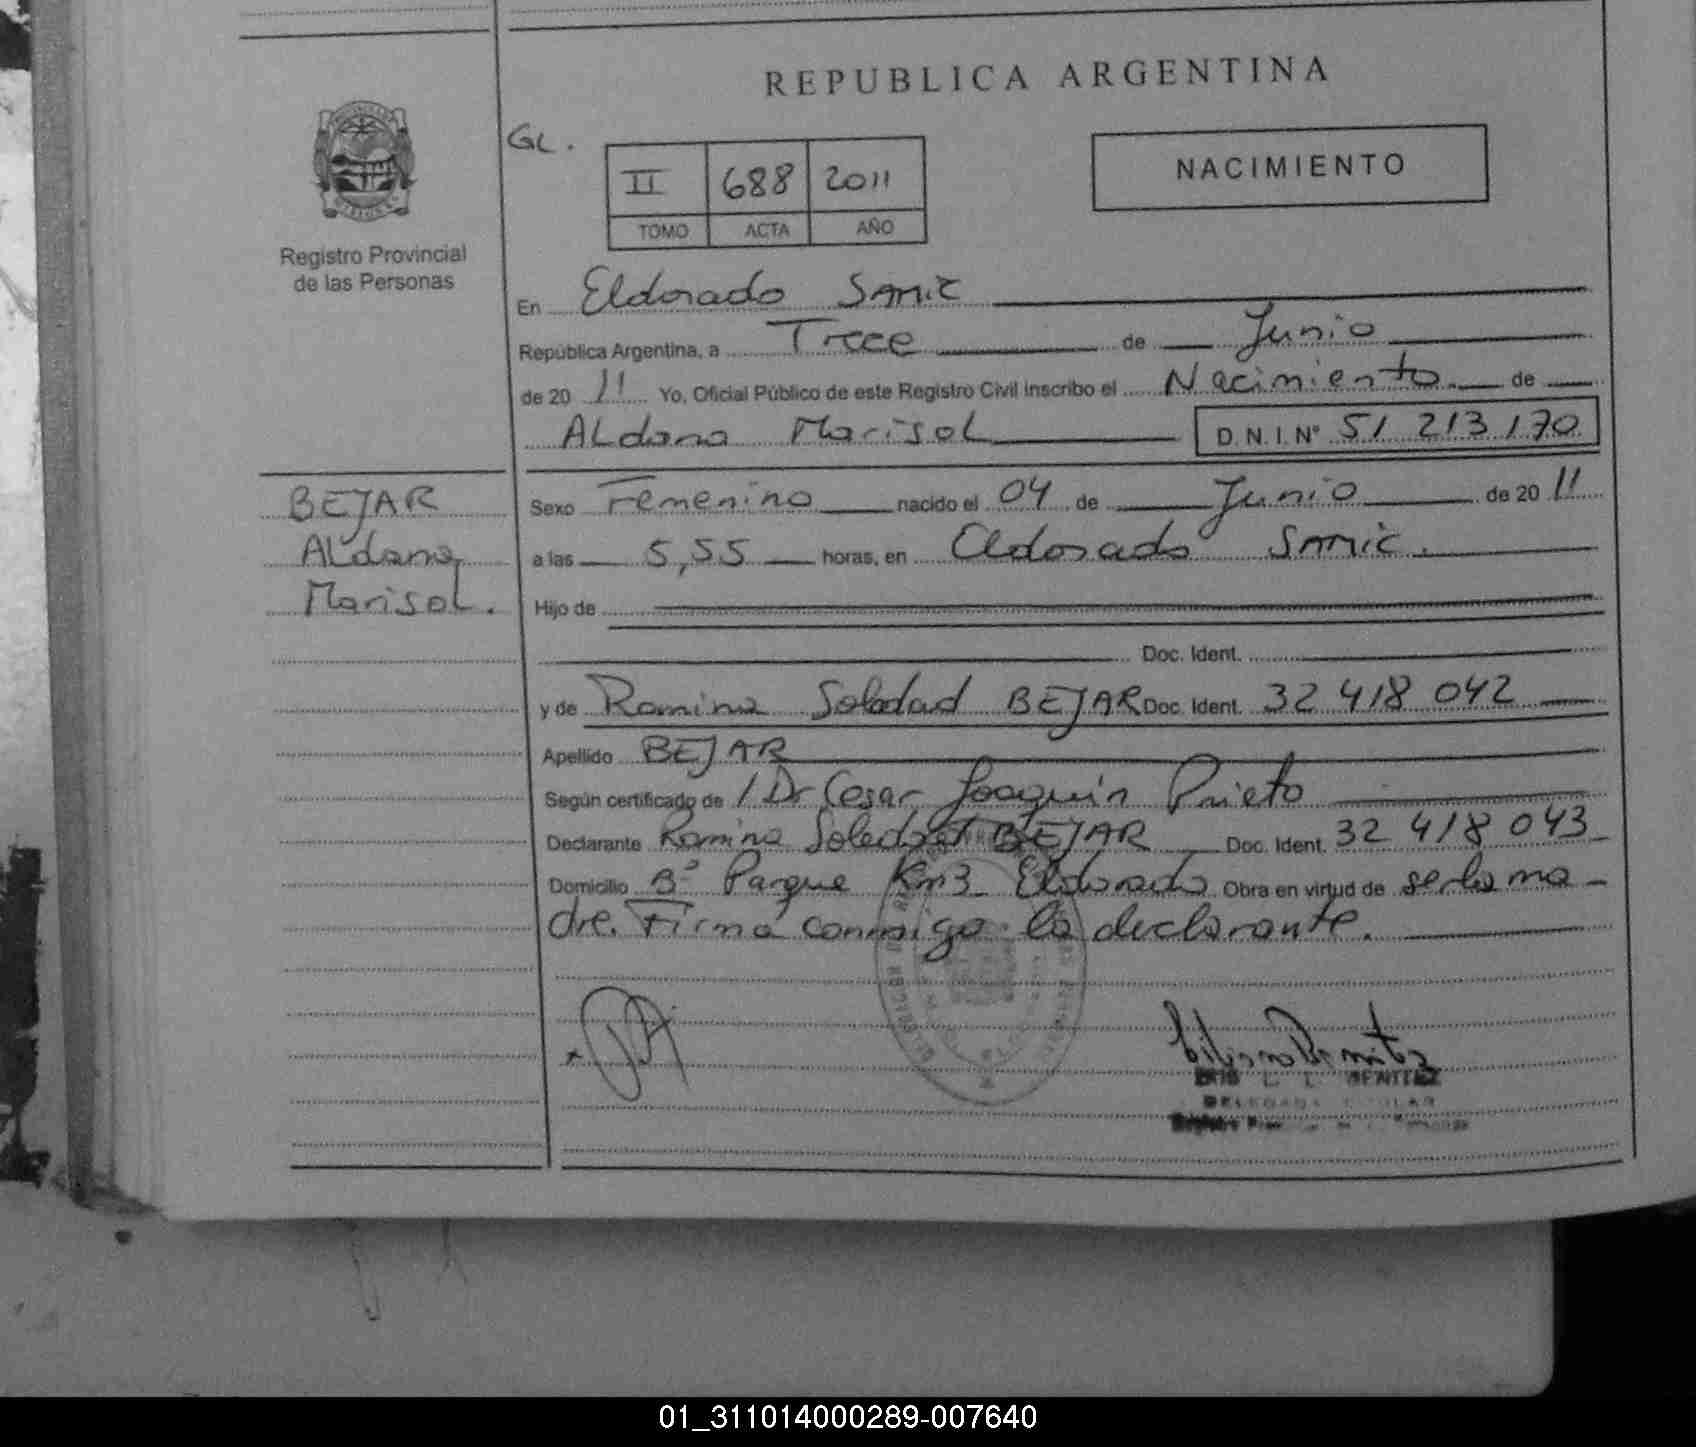 REPUBLICA ARGENTINA
GL.
II 688 2011
TOMO ACTA AÑO
NACIMIENTO
Registro Provincial
de las Personas
En Eldorado Samic
República Argentina, a Trece de Junio
de 20 11 Yo, Oficial Público de este Registro Civil inscribo el Nacimiento de
ALdana Marisol D.N.I.Nº 51 213 170
BEJAR
ALdana
Marisol.
Sexo Femenino nacido el 04 de Junio de 20 11
a las 5,55 horas, en Eldorado Samic.
Hijo de
Doc. Ident.
y de Romina Soledad BEJAR Doc. Ident. 32 418 042
Apellido BEJAR
Según certificado de / Dr Cesar Joaquin Prieto
Declarante Romina Soledad BEJAR Doc. Ident. 32 418 043
Domicilio Bº Parque Km3 Eldorado Obra en virtud de ser la ma-
dre. Firma conmigo la declarante.
BENITEZ
01_311014000289-007640